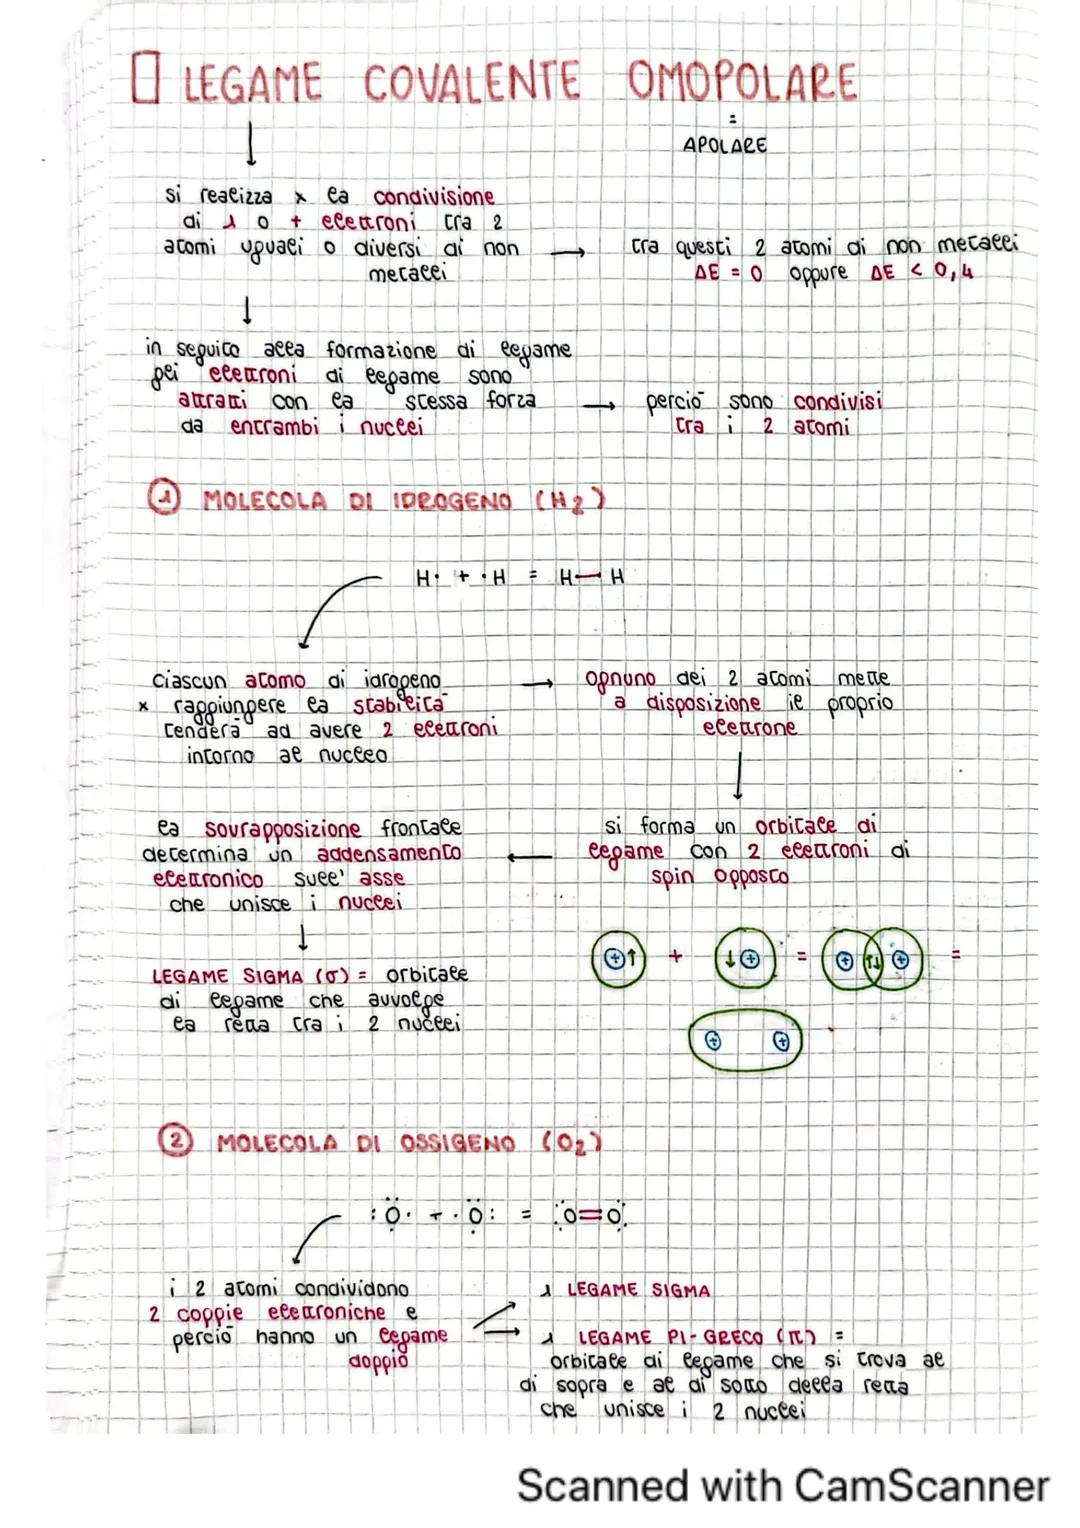 LEGAME COVALENTE OMOPOLARE
=
APOLARE
si realizza x la condivisione
di 1 o + elettroni tra 2
atomi uguali o diversi di non
metalli
→ tra questi 2 atomi di non metalli
ΔE = 0 oppure ΔE < 0,4
in seguito alla formazione di legame
gli elettroni di legame sono
attratti con la stessa forza
da entrambi i nuclei
→ perciò sono condivisi
tra i 2 atomi
1 MOLECOLA DI IDROGENO (H2)
H· + ·H = H—H
ciascun atomo di idrogeno
x raggiungere la stabilità
tenderà ad avere 2 elettroni
intorno al nucleo
→ ognuno dei 2 atomi mette
a disposizione il proprio
elettrone
si forma un orbitale di
legame con 2 elettroni di
spin opposto
la sovrapposizione frontale
determina un addensamento
elettronico sull' asse
che unisce i nuclei
LEGAME SIGMA (σ) = orbitale
di legame che avvolge
la retta tra i 2 nuclei
⊕↑ + ↓⊕ = ⊕↑↓⊕ =
⊕ ⊕
2 MOLECOLA DI OSSIGENO (O2)
:Ö· + ·Ö: = :O=O:
i 2 atomi condividono
2 coppie elettroniche e
perciò hanno un legame
doppio
1 LEGAME SIGMA
1 LEGAME PI-GRECO (π) =
orbitale di legame che si trova al
di sopra e al di sotto della retta
che unisce i 2 nuclei
Scanned with CamScanner